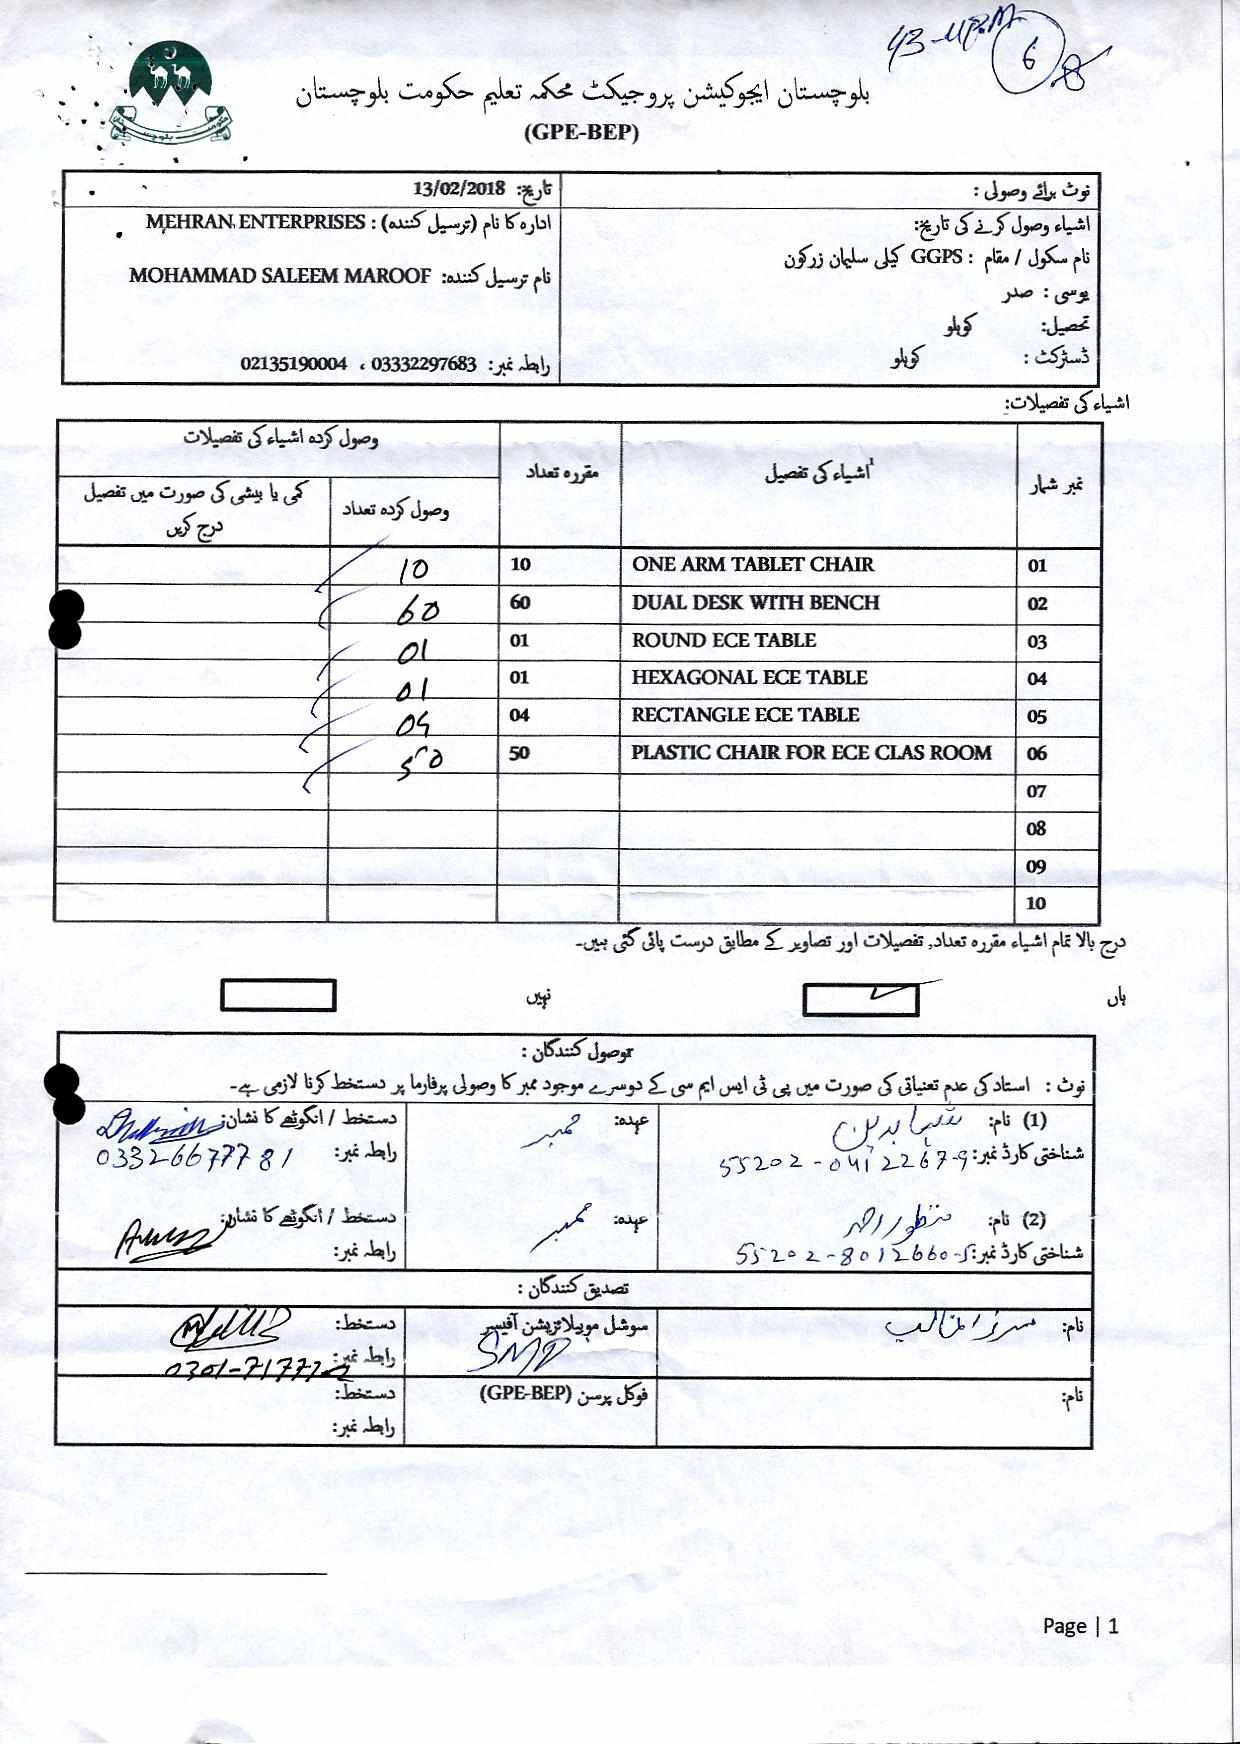 6
8
بلوچستان ایجوکیشن پروجیکٹ محکمہ تعلیم حکومت بلوچستان
(GPE-BEP)
نوٹ برائے وصولی :
تاریخ: 13/02/2018
اشیاء وصول کرنے کی تاریخ:
ادارہ کا نام (ترسیل کنندہ) : MEHRAN ENTERPRISES
نام سکول / مقام : GGPS کیلی سلیمان زرکون
نام ترسیل کنندہ: MOHAMMAD SALEEM MAROOF
یوسی : صدر
تحصیل: کوہلو
ڈسٹرکٹ : کوہلو
رابطہ نمبر: 03332297683 ، 02135190004
اشیاء کی تفصیلات:
نمبر شمار اشیاء کی تفصیل مقررہ تعداد وصول کردہ اشیاء کی تفصیلات
وصول کردہ تعداد کمی یا بیشی کی صورت میں تفصیل درج کریں
01 ONE ARM TABLET CHAIR 10 10
02 DUAL DESK WITH BENCH 60 60
03 ROUND ECE TABLE 01 01
04 HEXAGONAL ECE TABLE 01 01
05 RECTANGLE ECE TABLE 04 04
06 PLASTIC CHAIR FOR ECE CLAS ROOM 50 50
07
08
09
10
درج بالا تمام اشیاء مقررہ تعداد, تفصیلات اور تصاویر کے مطابق درست پائی گئی ہیں۔
ہاں نہیں
توصول کنندگان :
نوٹ : استاد کی عدم تعنیاتی کی صورت میں پی ٹی ایس ایم سی کے دوسرے موجود ممبر کا وصولی پرفارما پر دستخط کرنا لازمی ہے۔
(1) نام: عہدہ: ممبر دستخط / انگوٹھے کا نشان:
شناختی کارڈ نمبر: 55202-0412267-9 رابطہ نمبر: 03326677781
(2) نام: منظور احمد عہدہ: ممبر دستخط / انگوٹھے کا نشان:
شناختی کارڈ نمبر: 55202-8012660-5 رابطہ نمبر:
تصدیق کنندگان :
نام: سوشل موبیلائزیشن آفیسر دستخط:
رابطہ نمبر:
نام: فوکل پرسن (GPE-BEP) دستخط:
رابطہ نمبر:
Page | 1